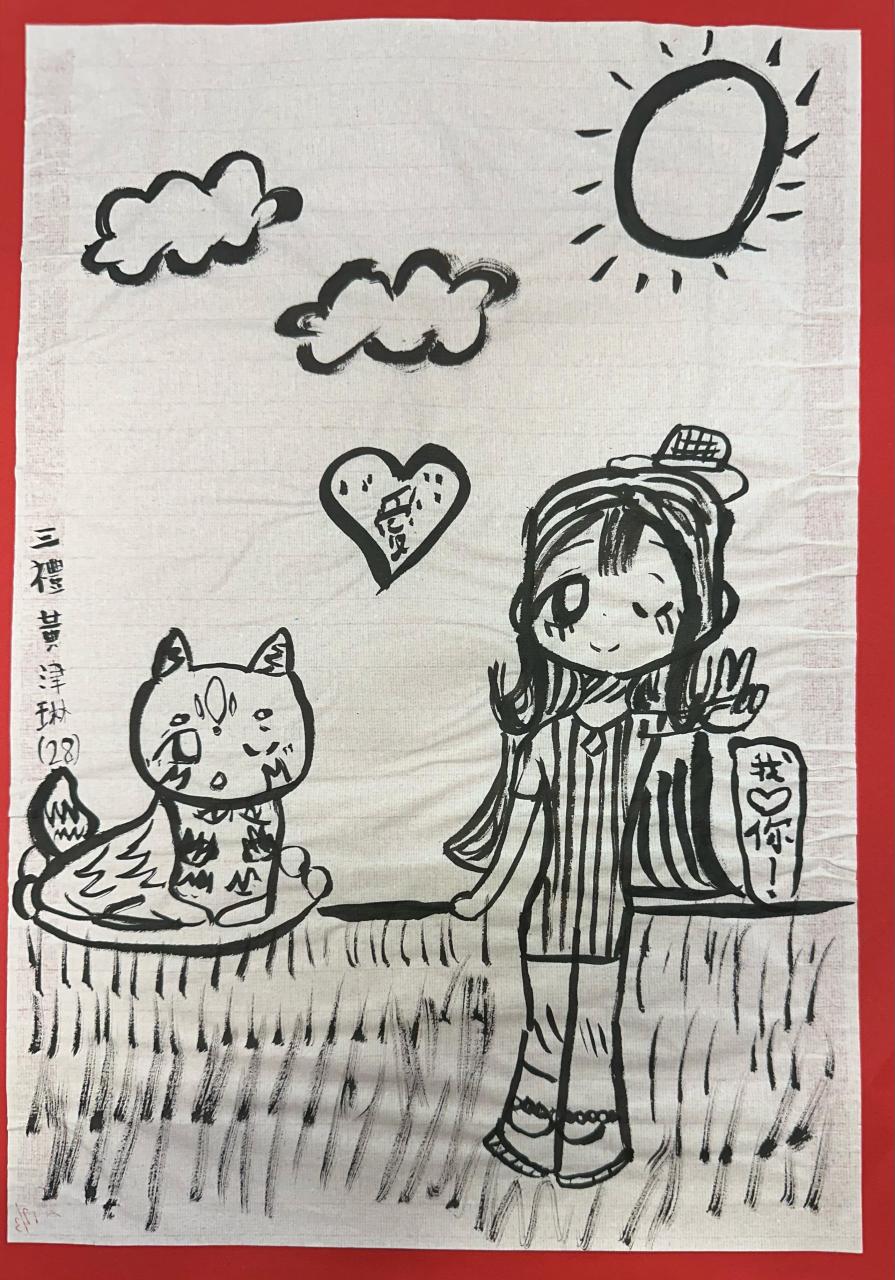 三禮黃津琳(28)
愛
我♡你！